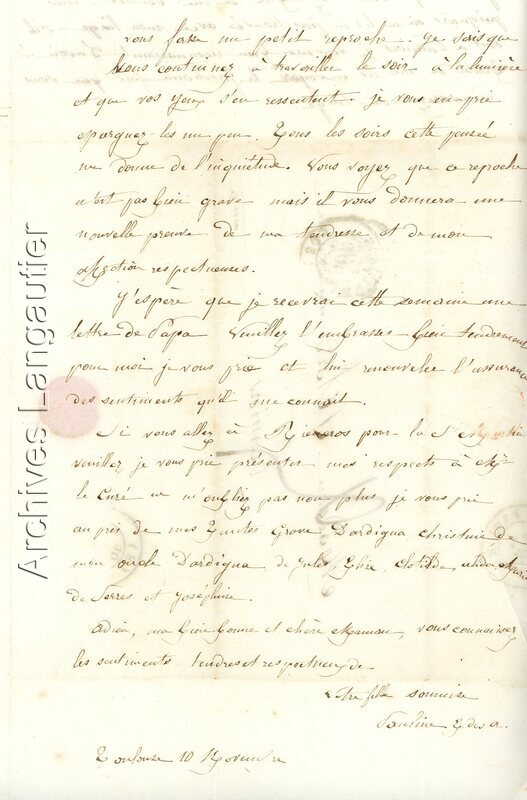 vous fasse un petit reproche. je sais que
vous continuez à travailler le soir à la lumière
et que vos yeux s'en ressentent. je vous en prie
eparguez-les un peu. Tous les soirs cette pensée
me donne de l'inquiétude. Vous voyez que ce reproche
n'est pas bien grave mais il vous donnera une
nouvelle preuve de ma tendresse et de mon
affection respectueuses.
J'espère que je recevrai cette semaine une
lettre de Papa Veuillez l'embrasser bien tendrement
pour moi je vous prie et lui renouveler l'assurance
des sentiments qu'il me connait.
Si vous allez à pour la St
veuillez je vous prie présenter mes respects à Mr
le Curé et m'oubliez pas non plus je vous prie
auprès de mes Tantes Grave Dardigna Christine de
mon oncle Dardigna de Jules Clotilde
de Serres et Joséphine.
adieu, ma bien bonne et chère Maman, vous connaissez
les sentiments tendres et respectueux de
votre fille soumise
Pauline
Toulouse 10 Novembre
Archives Langautier